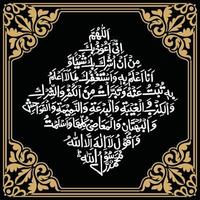 اَللّٰهُمَّ
اِنِّیْ اَعُوْذُ بِكَ
مِنْ اَنْ اُشْرِكَ بِكَ شَیْئًا
وَّاَنَا اَعْلَمُ بِهٖ وَاَسْتَغْفِرُكَ لِمَا لَا اَعْلَمُ
بِهٖ تُبْتُ عَنْهُ وَتَبَرَّأْتُ مِنَ الْكُفْرِ وَالشِّرْكِ
وَالْكِذْبِ وَالْغِیْبَةِ وَالْبِدْعَةِ وَالنَّمِیْمَةِ وَالْفَوَاحِشِ
وَالْبُهْتَانِ وَالْمَعَاصِیْ كُلِّهَا وَاَسْلَمْتُ
وَاَقُوْلُ لَا اِلٰهَ اِلَّا اللّٰهُ
مُحَمَّدٌ رَّسُوْلُ اللّٰهِ